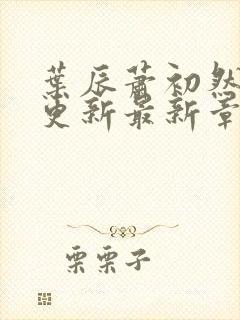 葉辰蕭初然
更新最新章
栗栗子